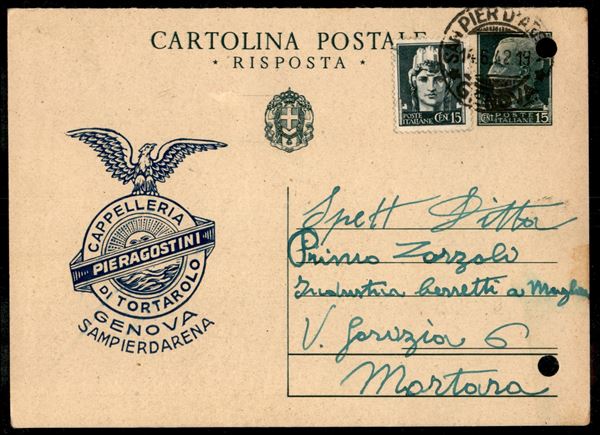 CARTOLINA POSTALE
* RISPOSTA *
SAN PIER D'AR
14.6.42.19
GENOVA
POSTE ITALIANE
CEN 15
POSTE ITALIANE
CENT 15
CAPPELLERIA
PIERAGOSTINI
DI TORTAROLO
GENOVA
SAMPIERDARENA
Spett Ditta
Primo Zorzolo
Industria berretti a
V. Gorizia 6
Mortara